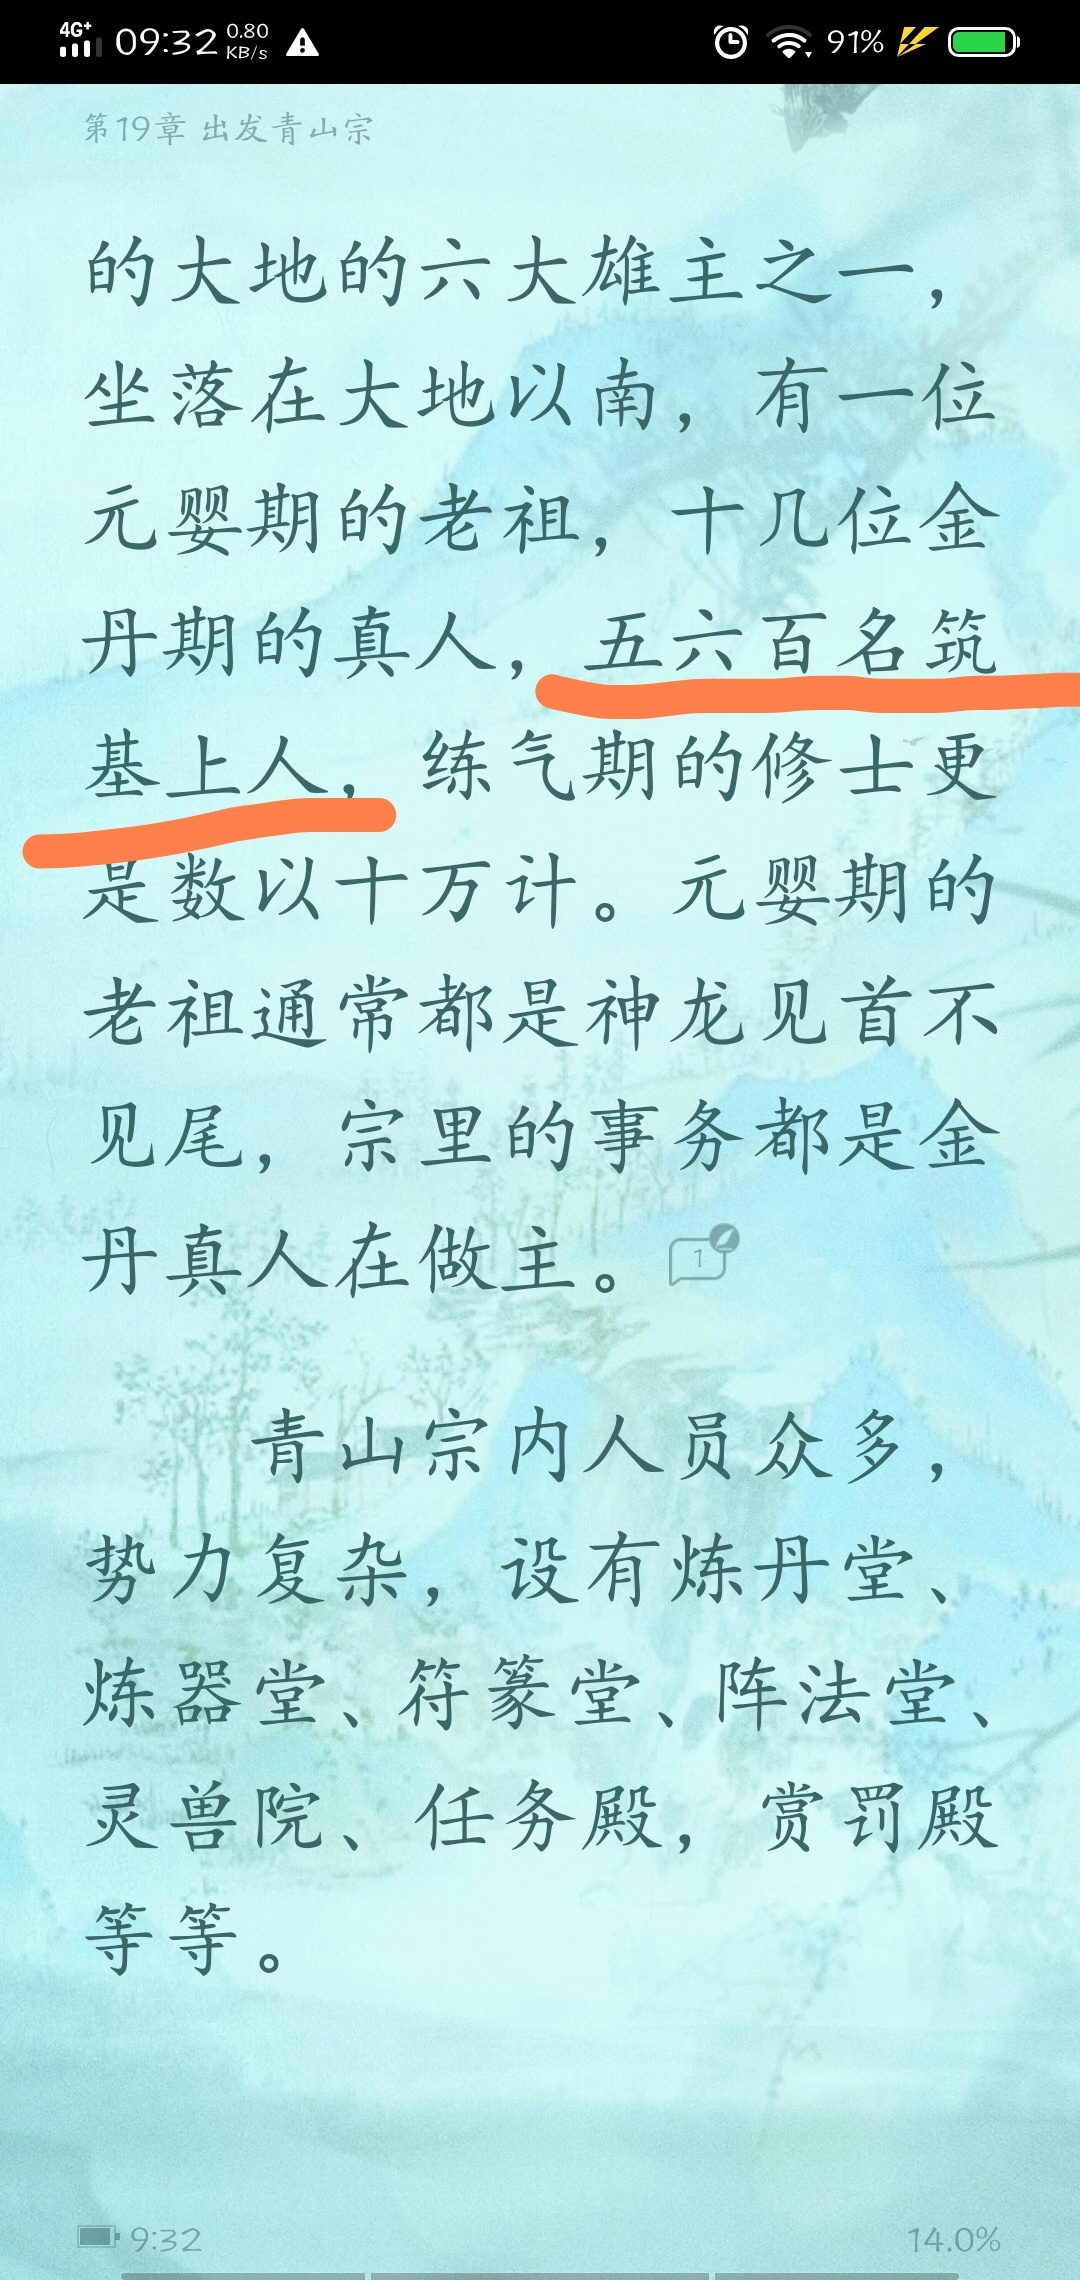 4G+ 09:32 0.80 KB/s 91%
第19章 出发青山宗
的大地的六大雄主之一，
坐落在大地以南，有一位
元婴期的老祖，十几位金
丹期的真人，五六百名筑
基上人，练气期的修士更
是数以十万计。元婴期的
老祖通常都是神龙见首不
见尾，宗里的事务都是金
丹真人在做主。 1
青山宗内人员众多，
势力复杂，设有炼丹堂、
炼器堂、符篆堂、阵法堂、
灵兽院、任务殿，赏罚殿
等等。
9:32 14.0%